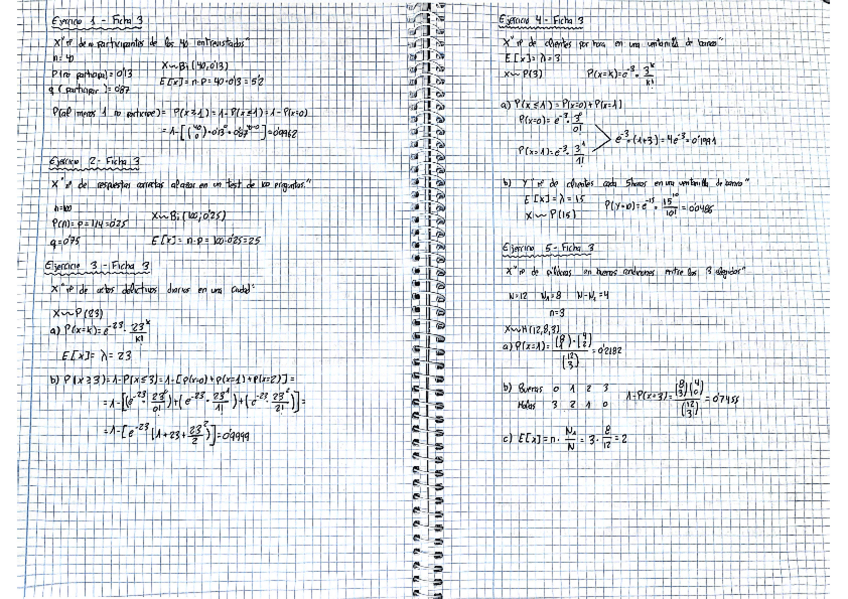 Ejercicio 1 - Ficha 3
X "nº de participantes de los 40 entrevistados"
n = 40
P(no participa) = 0'13
q (participar) = 0'87
X ~ Bi (40, 0'13)
E[x] = n·p = 40·0'13 = 5'2
P(al menos 1 no participe) = P(x≥1) = 1-P(x≤1) = 1-P(x=0)
= 1-[(40 0)·0'13⁰·0'87⁴⁰⁻⁰] = 0'9962
Ejercicio 2 - Ficha 3
X "nº de respuestas correctas al azar en un test de 100 preguntas."
n=100
P(A) = p = 1/4 = 0'25
q = 0'75
X ~ Bi (100, 0'25)
E[x] = n·p = 100·0'25 = 25
Ejercicio 3 - Ficha 3
X "nº de actos delictivos diarios en una ciudad"
X ~ P(23)
a) P(x=k) = e⁻²³ · 23ᵏ/k!
E[x] = λ = 23
b) P(x≥3) = 1-P(x≤3) = 1-[p(x=0)+p(x=1)+p(x=2)] =
= 1-[(e⁻²³ · 23⁰/0!)+(e⁻²³ · 23¹/1!)+(e⁻²³ · 23²/2!)] =
= 1-[e⁻²³ (1+23+23²/2)] = 0'9999
Ejercicio 4 - Ficha 3
X "nº de clientes por hora en una ventanilla de banco"
E[x] = λ = 3
X ~ P(3)
P(x=k) = e⁻³ · 3ᵏ/k!
a) P(x≤1) = P(x=0)+P(x=1)
P(x=0) = e⁻³ · 3⁰/0!
P(x=1) = e⁻³ · 3¹/1!
e⁻³·(1+3) = 4e⁻³ = 0'1991
b) Y "nº de clientes cada 5 horas en una ventanilla de banco"
E[x] = λ = 15
X ~ P(15)
P(Y=10) = e⁻¹⁵ · 15¹⁰/10! = 0'0486
Ejercicio 5 - Ficha 3
X "nº de píldoras en buenas condiciones entre las 3 elegidas"
N=12 N₁=8 N-N₁=4
n=3
X ~ H(12,8,3)
a) P(x=1) = (8 1)·(4 2)/(12 3) = 0'2182
b) Buenas 0 1 2 3
Malas 3 2 1 0
1-P(x=3) = (8 3)(4 0)/(12 3) = 0'7455
c) E[x] = n · N₁/N = 3 · 8/12 = 2